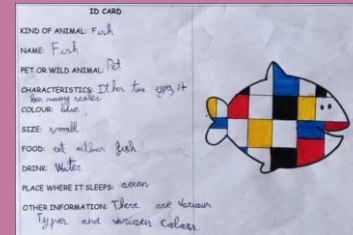 ID CARD
KIND OF ANIMAL: Fish
NAME: Fish
PET OR WILD ANIMAL: Pet
CHARACTERISTICS: It has two eyes, it
has many scales
COLOUR: blue
SIZE: small
FOOD: eat other fish
DRINK: Water
PLACE WHERE IT SLEEPS: ocean
OTHER INFORMATION: There are various
Types and various colors